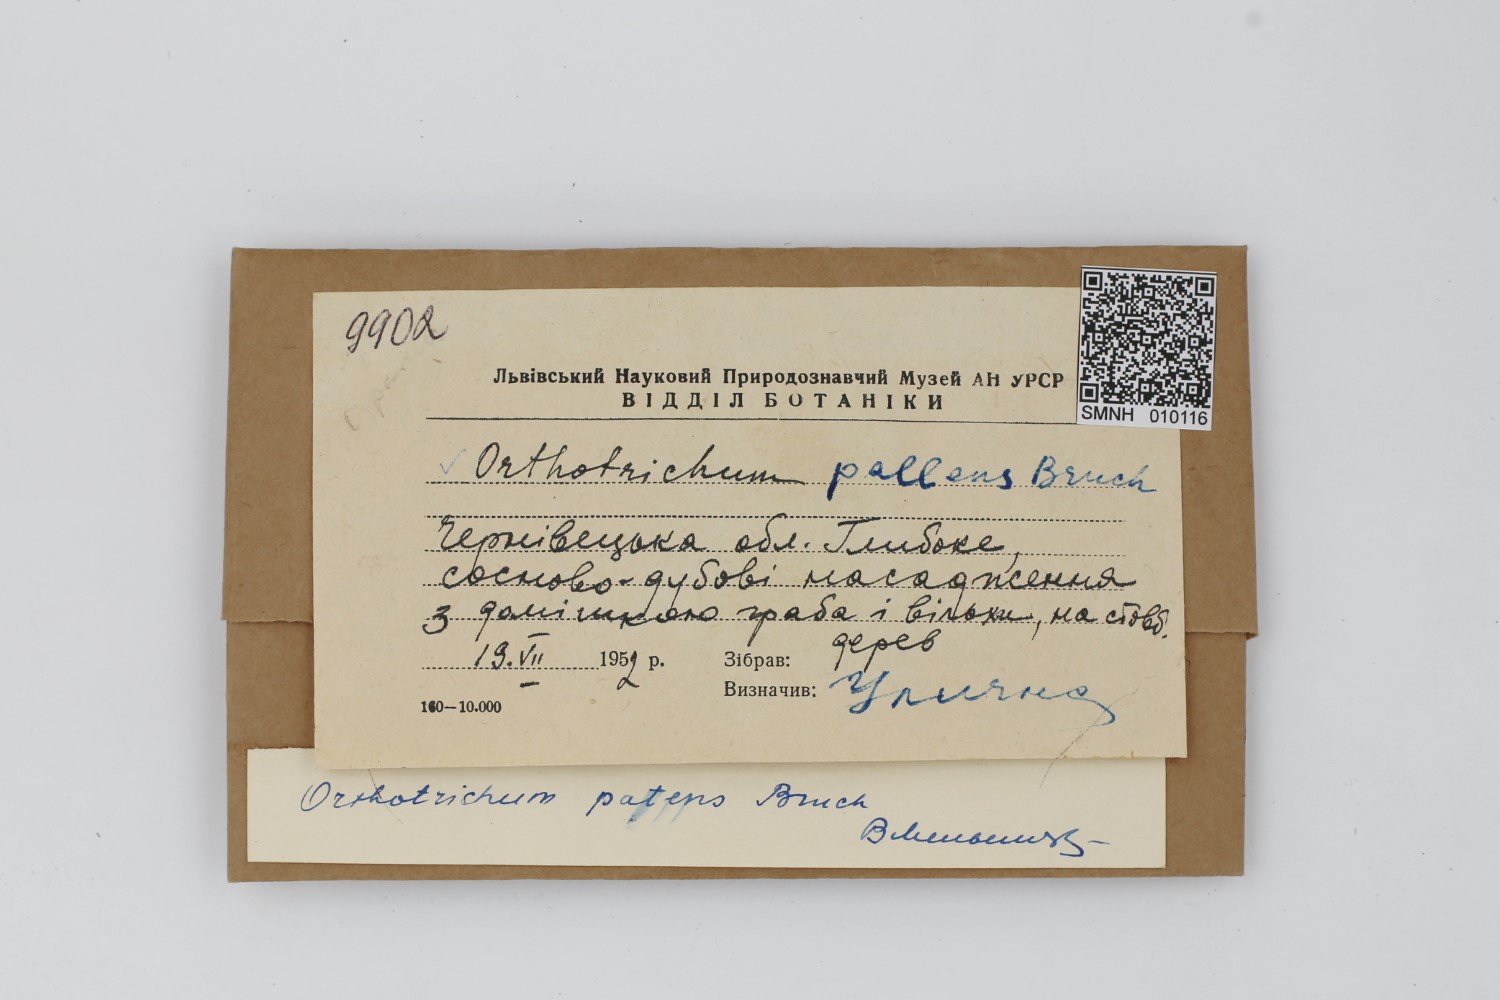 9902
Львівський Науковий Природознавчий Музей АН УРСР
ВІДДІЛ БОТАНІКИ
SMNH 010116
Orthotrichum pallens Bruch
Чернівецька обл. Глибоке,
сосново-дубові насадження
з домішкою граба і вільхи, на стовб.
дерев
19.VII 1952 р. Зібрав:
Визначив: Улична
160—10.000
Orthotrichum patens Bruch